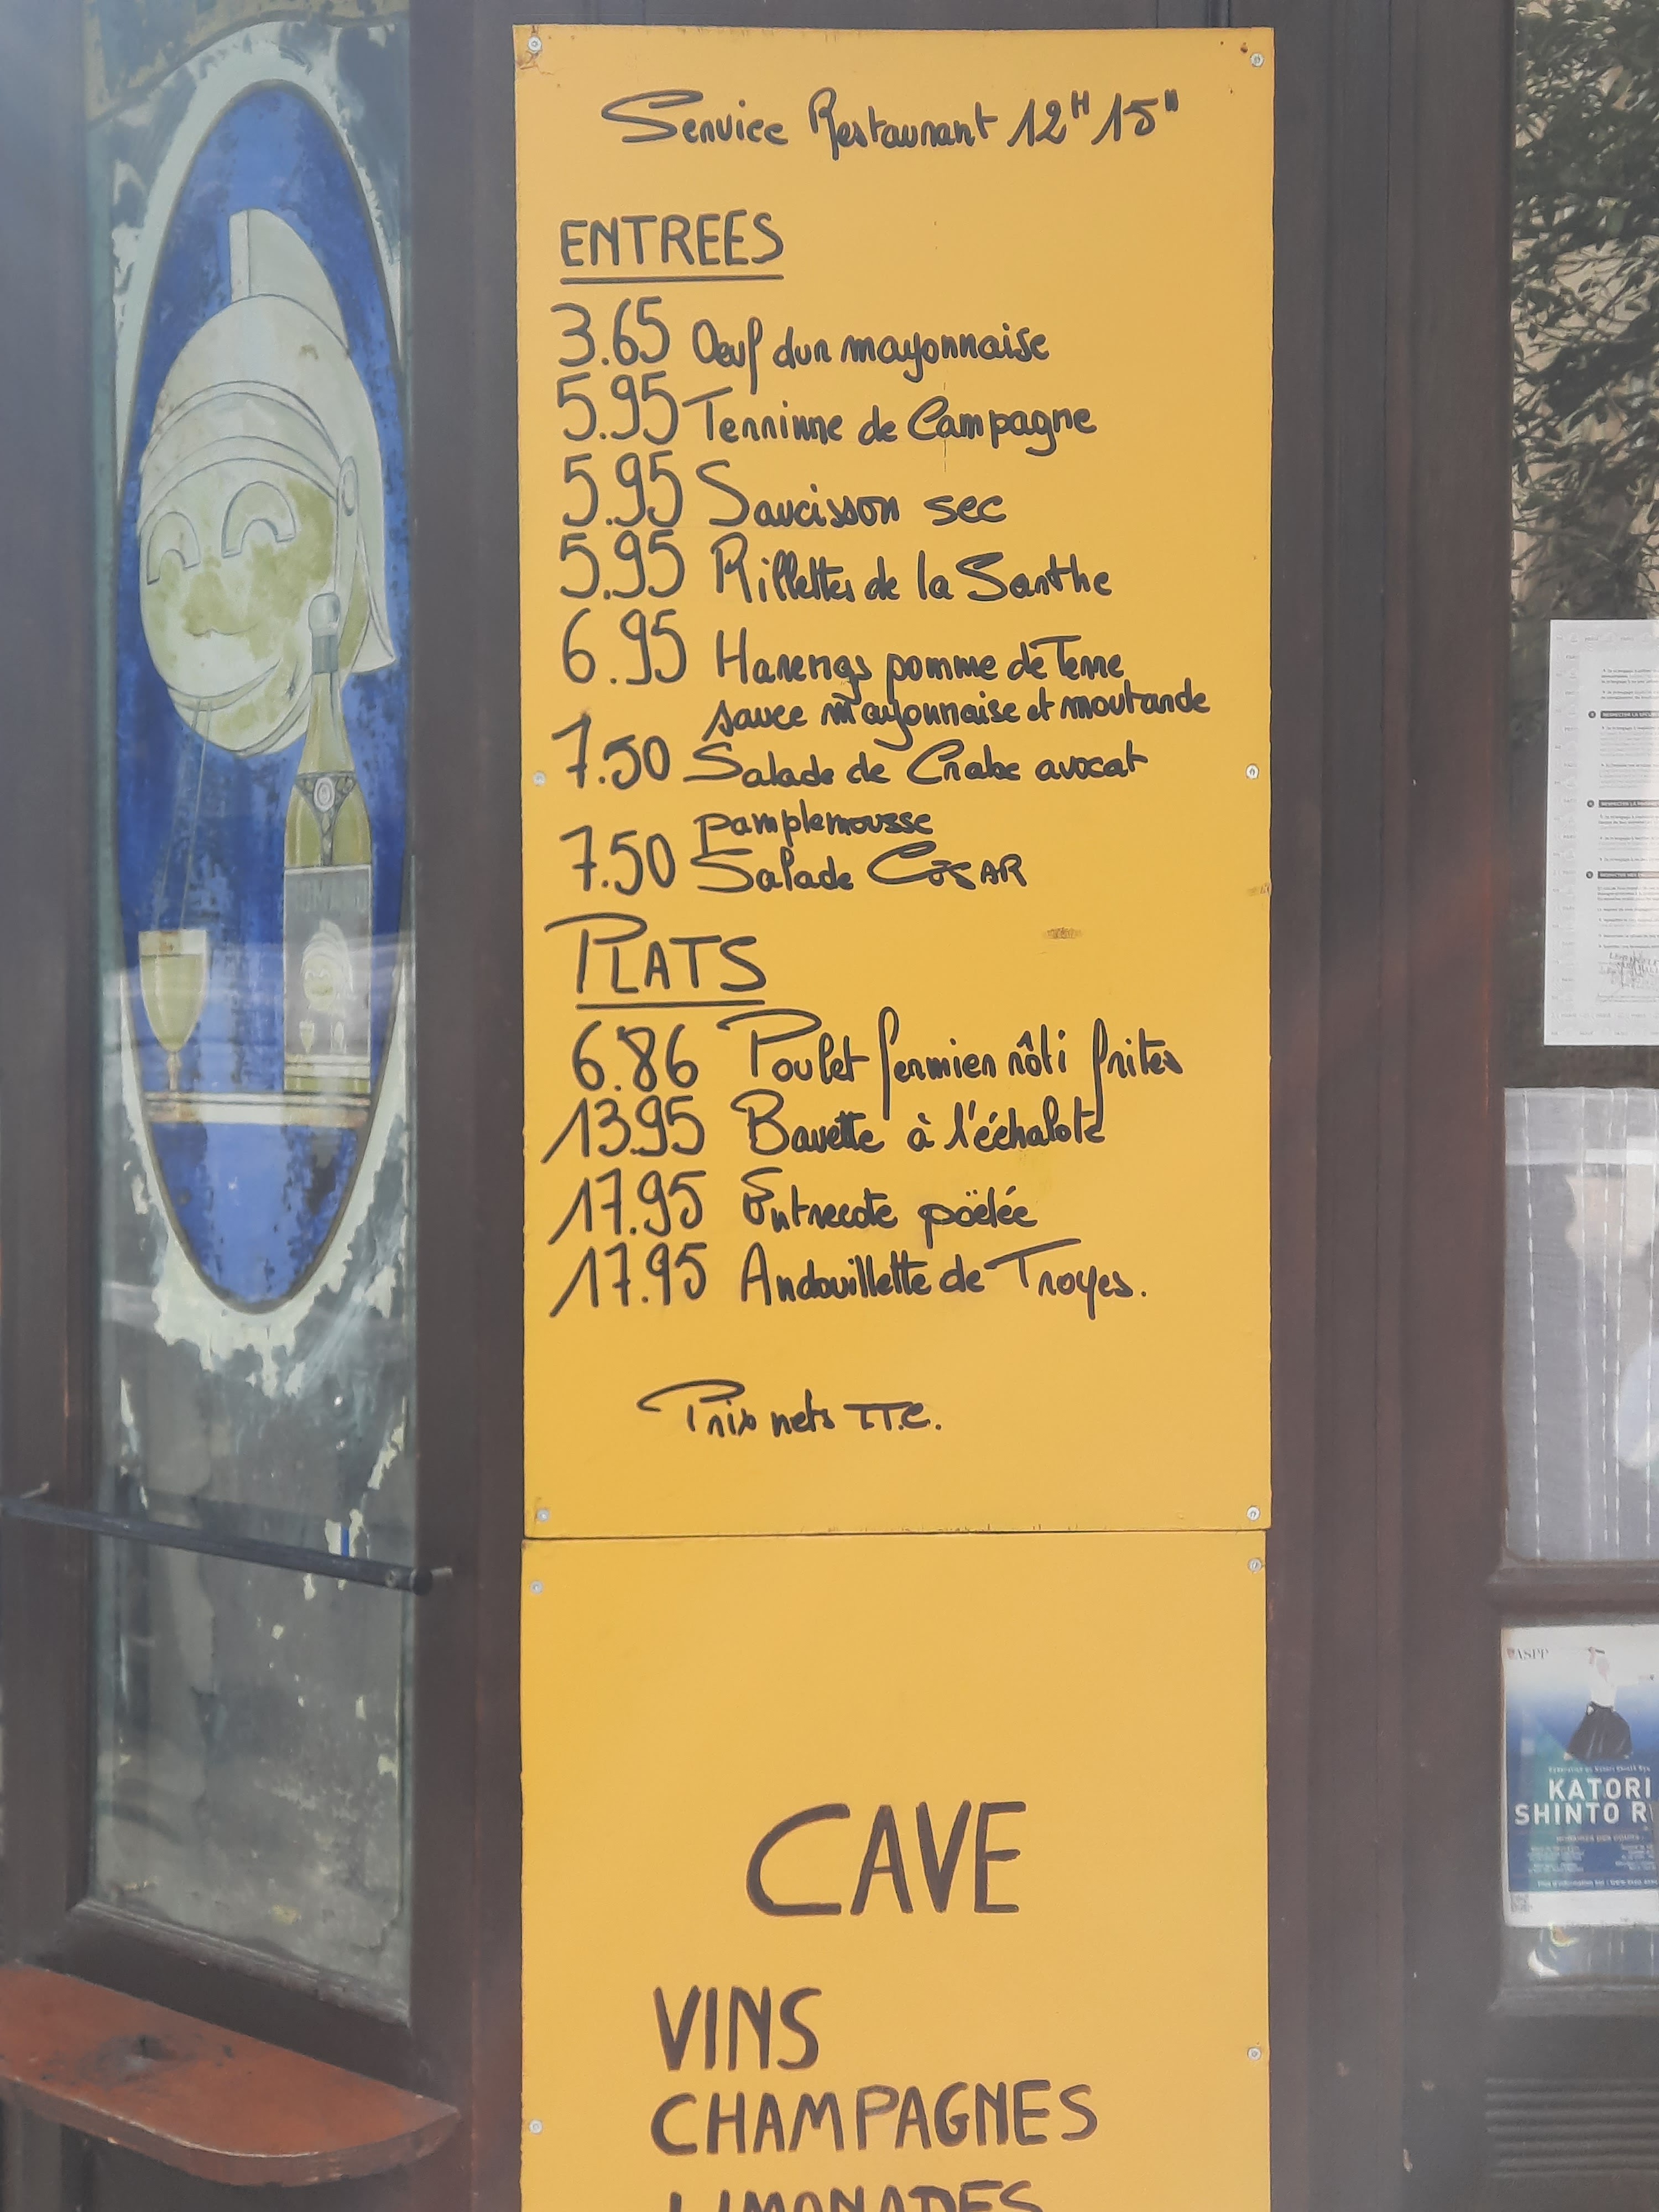 Service Restaurant 12H 15H
ENTREES
3.65 Oeuf dur mayonnaise
5.95 Terrinne de Campagne
5.95 Saucisson sec
5.95 Rillettes de la Sarthe
6.95 Harengs pomme de Terre
sauce mayonnaise et moutarde
7.50 Salade de Crabe avocat
pamplemousse
7.50 Salade CéSAR
PLATS
6.86 Poulet fermier rôti frites
13.95 Bavette à l'échalote
17.95 Entrecote poëlée
17.95 Andouillette de Troyes.
Prix nets TTC.
CAVE
VINS
CHAMPAGNES
LIMONADES
ASPP
KATORI
SHINTO R